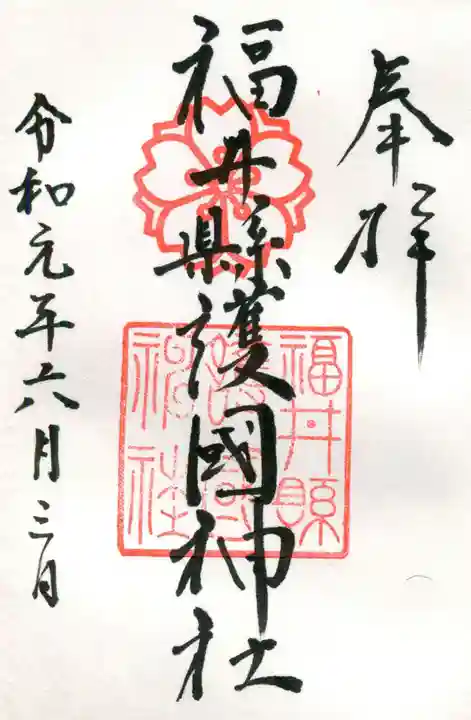 奉拝
福井縣護國神社
福井縣護國神社
令和元年六月三日